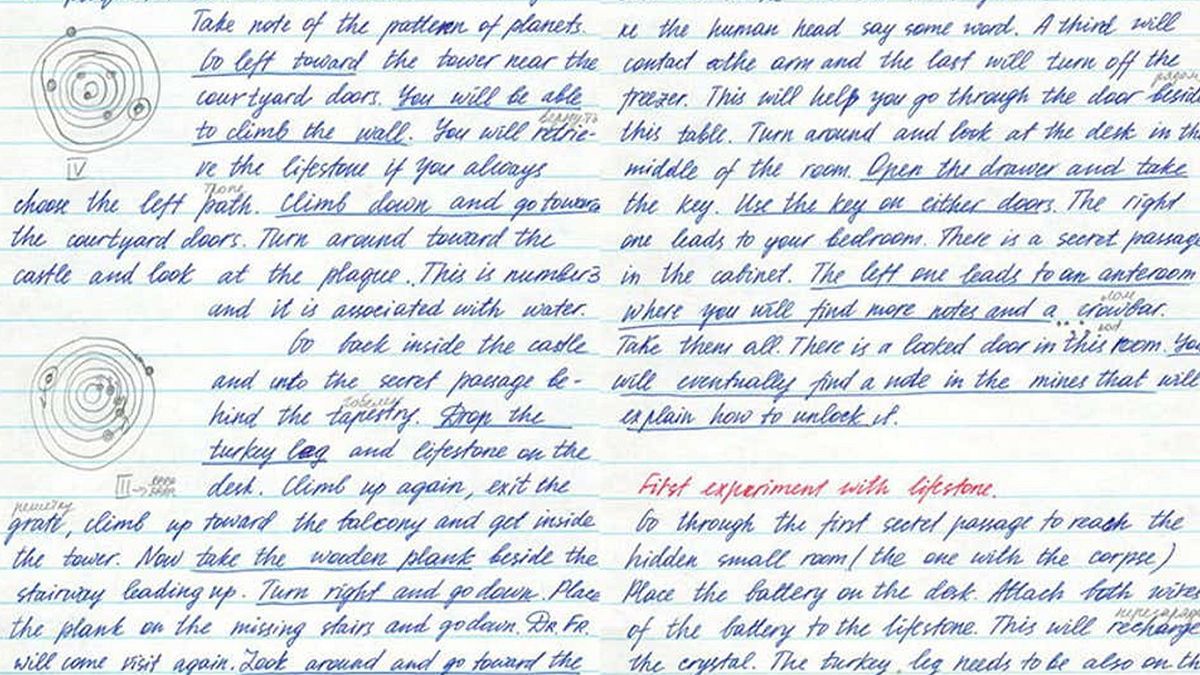 Take note of the pattern of planets.
Go left toward the tower near the
courtyard doors. You will be able
вернуть
to climb the wall. You will retrie-
IV
ve the lifestone if you always
тропе
choose the left path. Climb down and go toward
the courtyard doors. Turn around toward the
castle and look at the plaque. This is number 3
and it is associated with water.
Go back inside the castle
and into the secret passage be-
гобелен
hind the tapestry. Drop the
turkey leg and lifestone on the
III →
desk. Climb up again, exit the
решетку
grate, climb up toward the balcony and get inside
the tower. Now take the wooden plank beside the
stairway leading up. Turn right and go down. Place
the plank on the missing stairs and go down. DR. FR.
will come visit again. Look around and go toward the
re the human head say some word. A third will
contact the arm and the last will turn off the
рядом
freezer. This will help you go through the door besid
this table. Turn around and look at the desk in th
middle of the room. Open the drawer and take
the key. Use the key on either doors. The right
one leads to your bedroom. There is a secret passag
in the cabinet. The left one leads to an anteroom
лом
where you will find more notes and a crowbar.
Take them all. There is a looked door in this room. You
will eventually find a note in the mines that will
explain how to unlock it.
First experiment with lifestone.
Go through the first secret passage to reach the
hidden small room (the one with the corpse)
Place the battery on the desk. Attach both wires
перезаряд
of the battery to the lifestone. This will recharge
the crystal. The turkey leg needs to be also on th